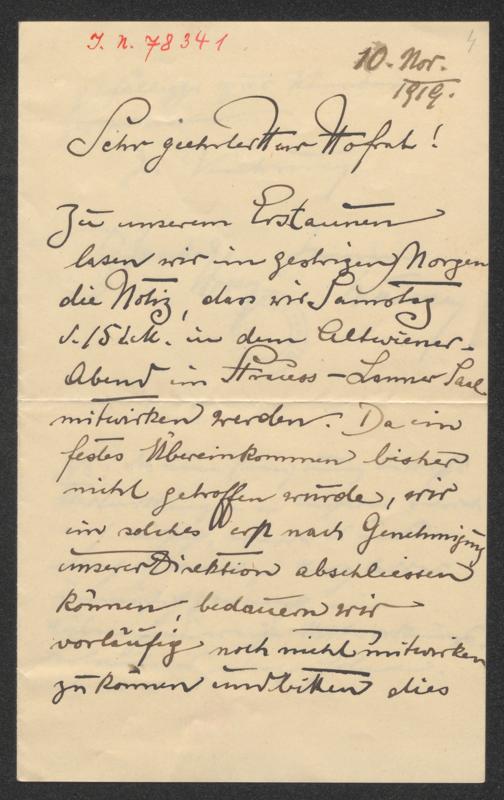 J. N. 78341
4
10. Nov.
1919.
Sehr geehrter Herr Hofrat!
Zu unserem Erstaunen
lasen wir im gestrigen Morgen
die Notiz, dass wir Samstag
d. 15 d. M. in dem Altwiener-
Abend im Strauss-Lanner Saal
mitwirken werden. Da ein
festes Übereinkommen bisher
nicht getroffen wurde, wir
ein solches erst nach Genehmigung
unserer Direktion abschliessen
können, bedauern wir
vorläufig noch nicht mitwirken
zu können und bitten dies